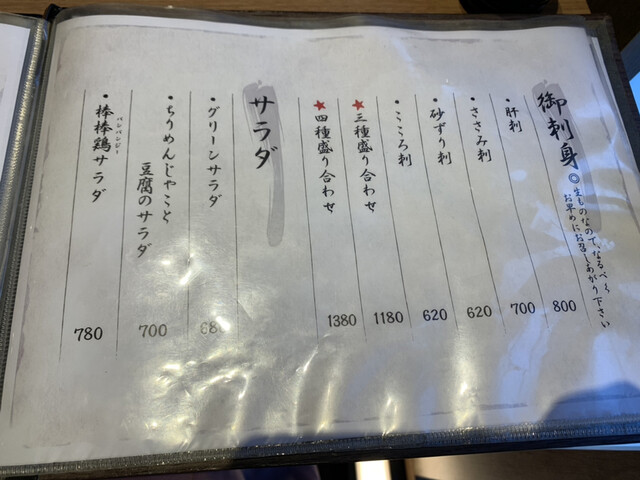 御刺身
◎生ものなので、なるべく、
お早めにお召しあがり下さい
・肝刺 800
・ささみ刺 700
・砂ずり刺 620
・こころ刺 620
★三種盛り合わせ 1180
★四種盛り合わせ 1380
サラダ
・グリーンサラダ
・ちりめんじゃこと
豆腐のサラダ 700
・棒棒鶏サラダ 780
バンバンジー